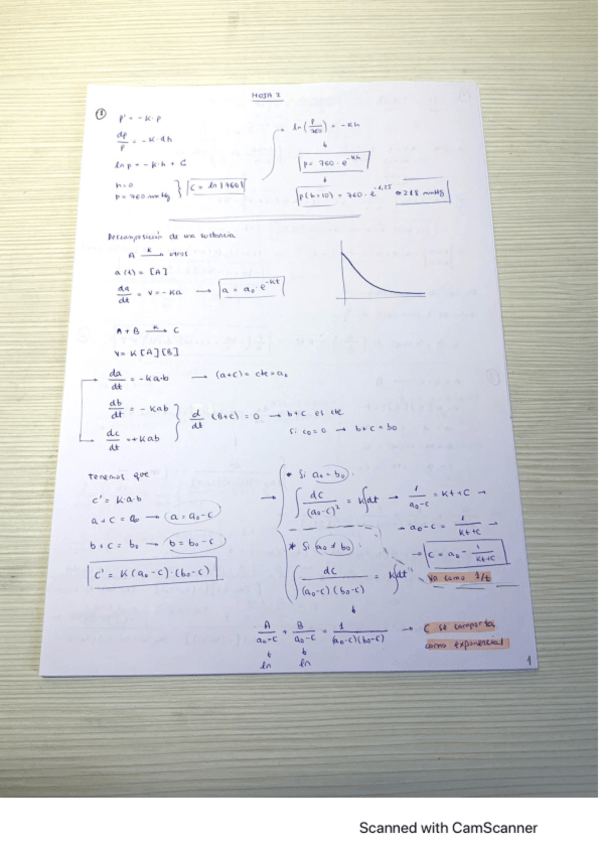 HOJA 2
① p' = -K·p
dp/p = -K·dh
ln p = -K·h + C
h=0
p=760 mmHg } C = ln(760)
→ ln(p/760) = -Kh
↓
p = 760·e^-Kh
↓
p(h=10) = 760·e^-1,25 218 mmHg
Descomposición de una sustancia
A —K→ otros
a(t) = [A]
da/dt = v = -Ka → a = a₀·e^-Kt
A + B —K→ C
v = K[A][B]
da/dt = -Ka·b → (a+c) = cte = a₀
db/dt = -Kab
dc/dt = +Kab
} d/dt (b+c) = 0 → b+c es cte
si c₀=0 → b+c = b₀
Tenemos que
c' = K·a·b
a+c = a₀ → a = a₀-c
b+c = b₀ → b = b₀-c
c' = K(a₀-c)·(b₀-c)
→ * Si a₀=b₀:
∫ dc/(a₀-c)² = K∫dt → 1/(a₀-c) = Kt+C →
→ a₀-c = 1/(Kt+C) →
→ c = a₀ - 1/(Kt+C)
va como 1/t
* Si a₀≠b₀:
∫ dc/((a₀-c)(b₀-c)) = K∫dt
↓
A/(a₀-c) + B/(a₀-c) = 1/((a₀-c)(b₀-c)) → C se comporta
como exponencial
ln ln
1
Scanned with CamScanner